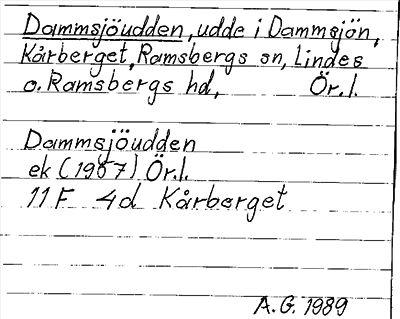 Dammsjöudden, udde i Dammsjön,
Kårberget, Ramsbergs sn, Lindes
o. Ramsbergs hd, Ör. l.
Dammsjöudden
ek (1967) Ör. l.
11F 4d Kårberget
A.G. 1989